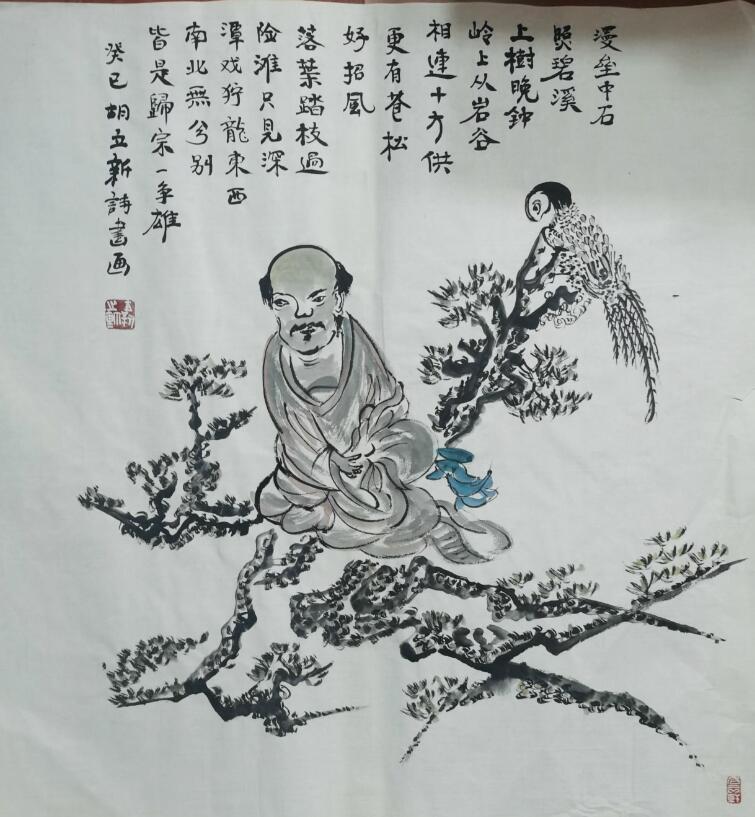 漫垒中石
照碧溪
上樹晚鈡
岭上从岩谷
相連十方供
更有苍松
好招風
落葉踏枝過
险滩只見深
潭戏狞龍東西
南北無兮别
皆是歸宗一争雄
癸巳 胡立新詩書画